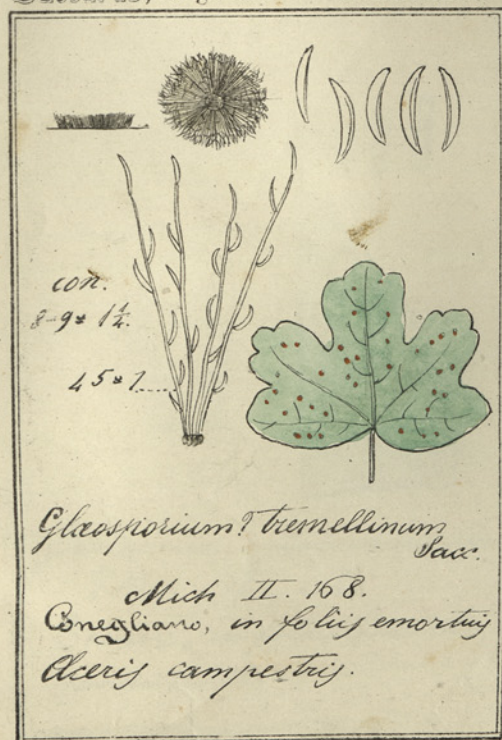 con.
8-9 * 1 1/4.
45 * 1
Glœosporium? tremellinum
Sacc.
Mich II. 168.
Conegliano, in foliis emortuis
Aceris campestris.